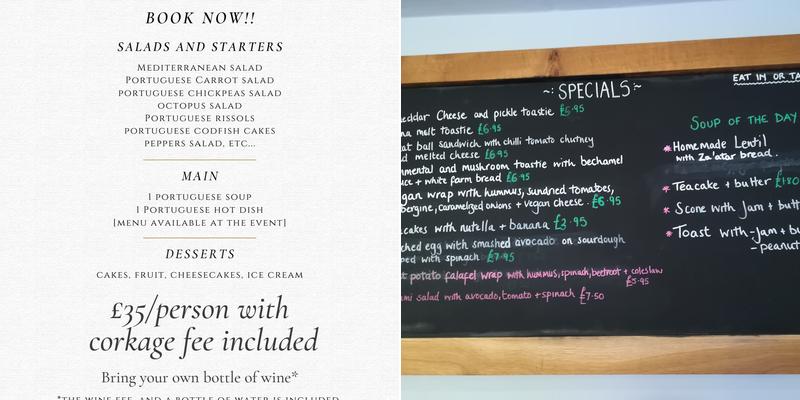 BOOK NOW!!
SALADS AND STARTERS
MEDITERRANEAN SALAD
PORTUGUESE CARROT SALAD
PORTUGUESE CHICKPEAS SALAD
OCTOPUS SALAD
PORTUGUESE RISSOLS
PORTUGUESE CODFISH CAKES
PEPPERS SALAD, ETC...
MAIN
1 PORTUGUESE SOUP
1 PORTUGUESE HOT DISH
[MENU AVAILABLE AT THE EVENT]
DESSERTS
CAKES, FRUIT, CHEESECAKES, ICE CREAM
£35/person with
corkage fee included
Bring your own bottle of wine*
*THE WINE FEE, AND A BOTTLE OF WATER IS INCLUDED
~: SPECIALS :~
eddar Cheese and pickle toastie £5.95
na melt toastie £6.95
at ball Sandwich with chilli tomato chutney
d melted cheese £6.95
mental and mushroom toastie with bechamel
uce + white farm bread £6.95
gan wrap with hummus, sundried tomatoes,
bergine, caramelized onions + vegan cheese. £6.95
cakes with nutella + banana £3.95
ched egg with smashed avocado on sourdough
ped with spinach £7.95
t potato falafel wrap with hummus, spinach, beetroot + coleslaw
£5.95
mi salad with avocado, tomato + spinach £7.50
EAT IN OR TA
SOUP OF THE DAY
* Homemade Lentil
with Za'atar bread.
* Teacake + butter £1.80
* Scone with Jam + butt
* Toast with - Jam + bu
- peanut